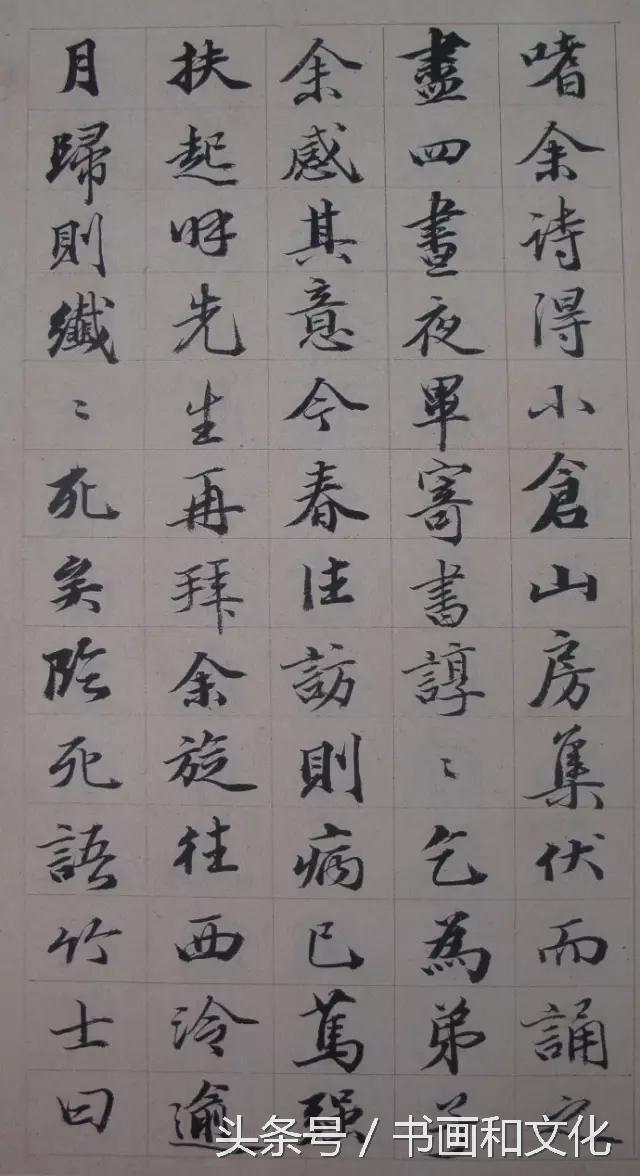 嗜余诗得小倉山房集伏而誦之
盡四晝夜畢寄書諄〻乞為弟
余感其意今春往訪則病已篤强
扶起呼先生再拜余旋往西泠逾
月歸則纖〻死矣臨死語竹士曰
头条号 / 书画和文化